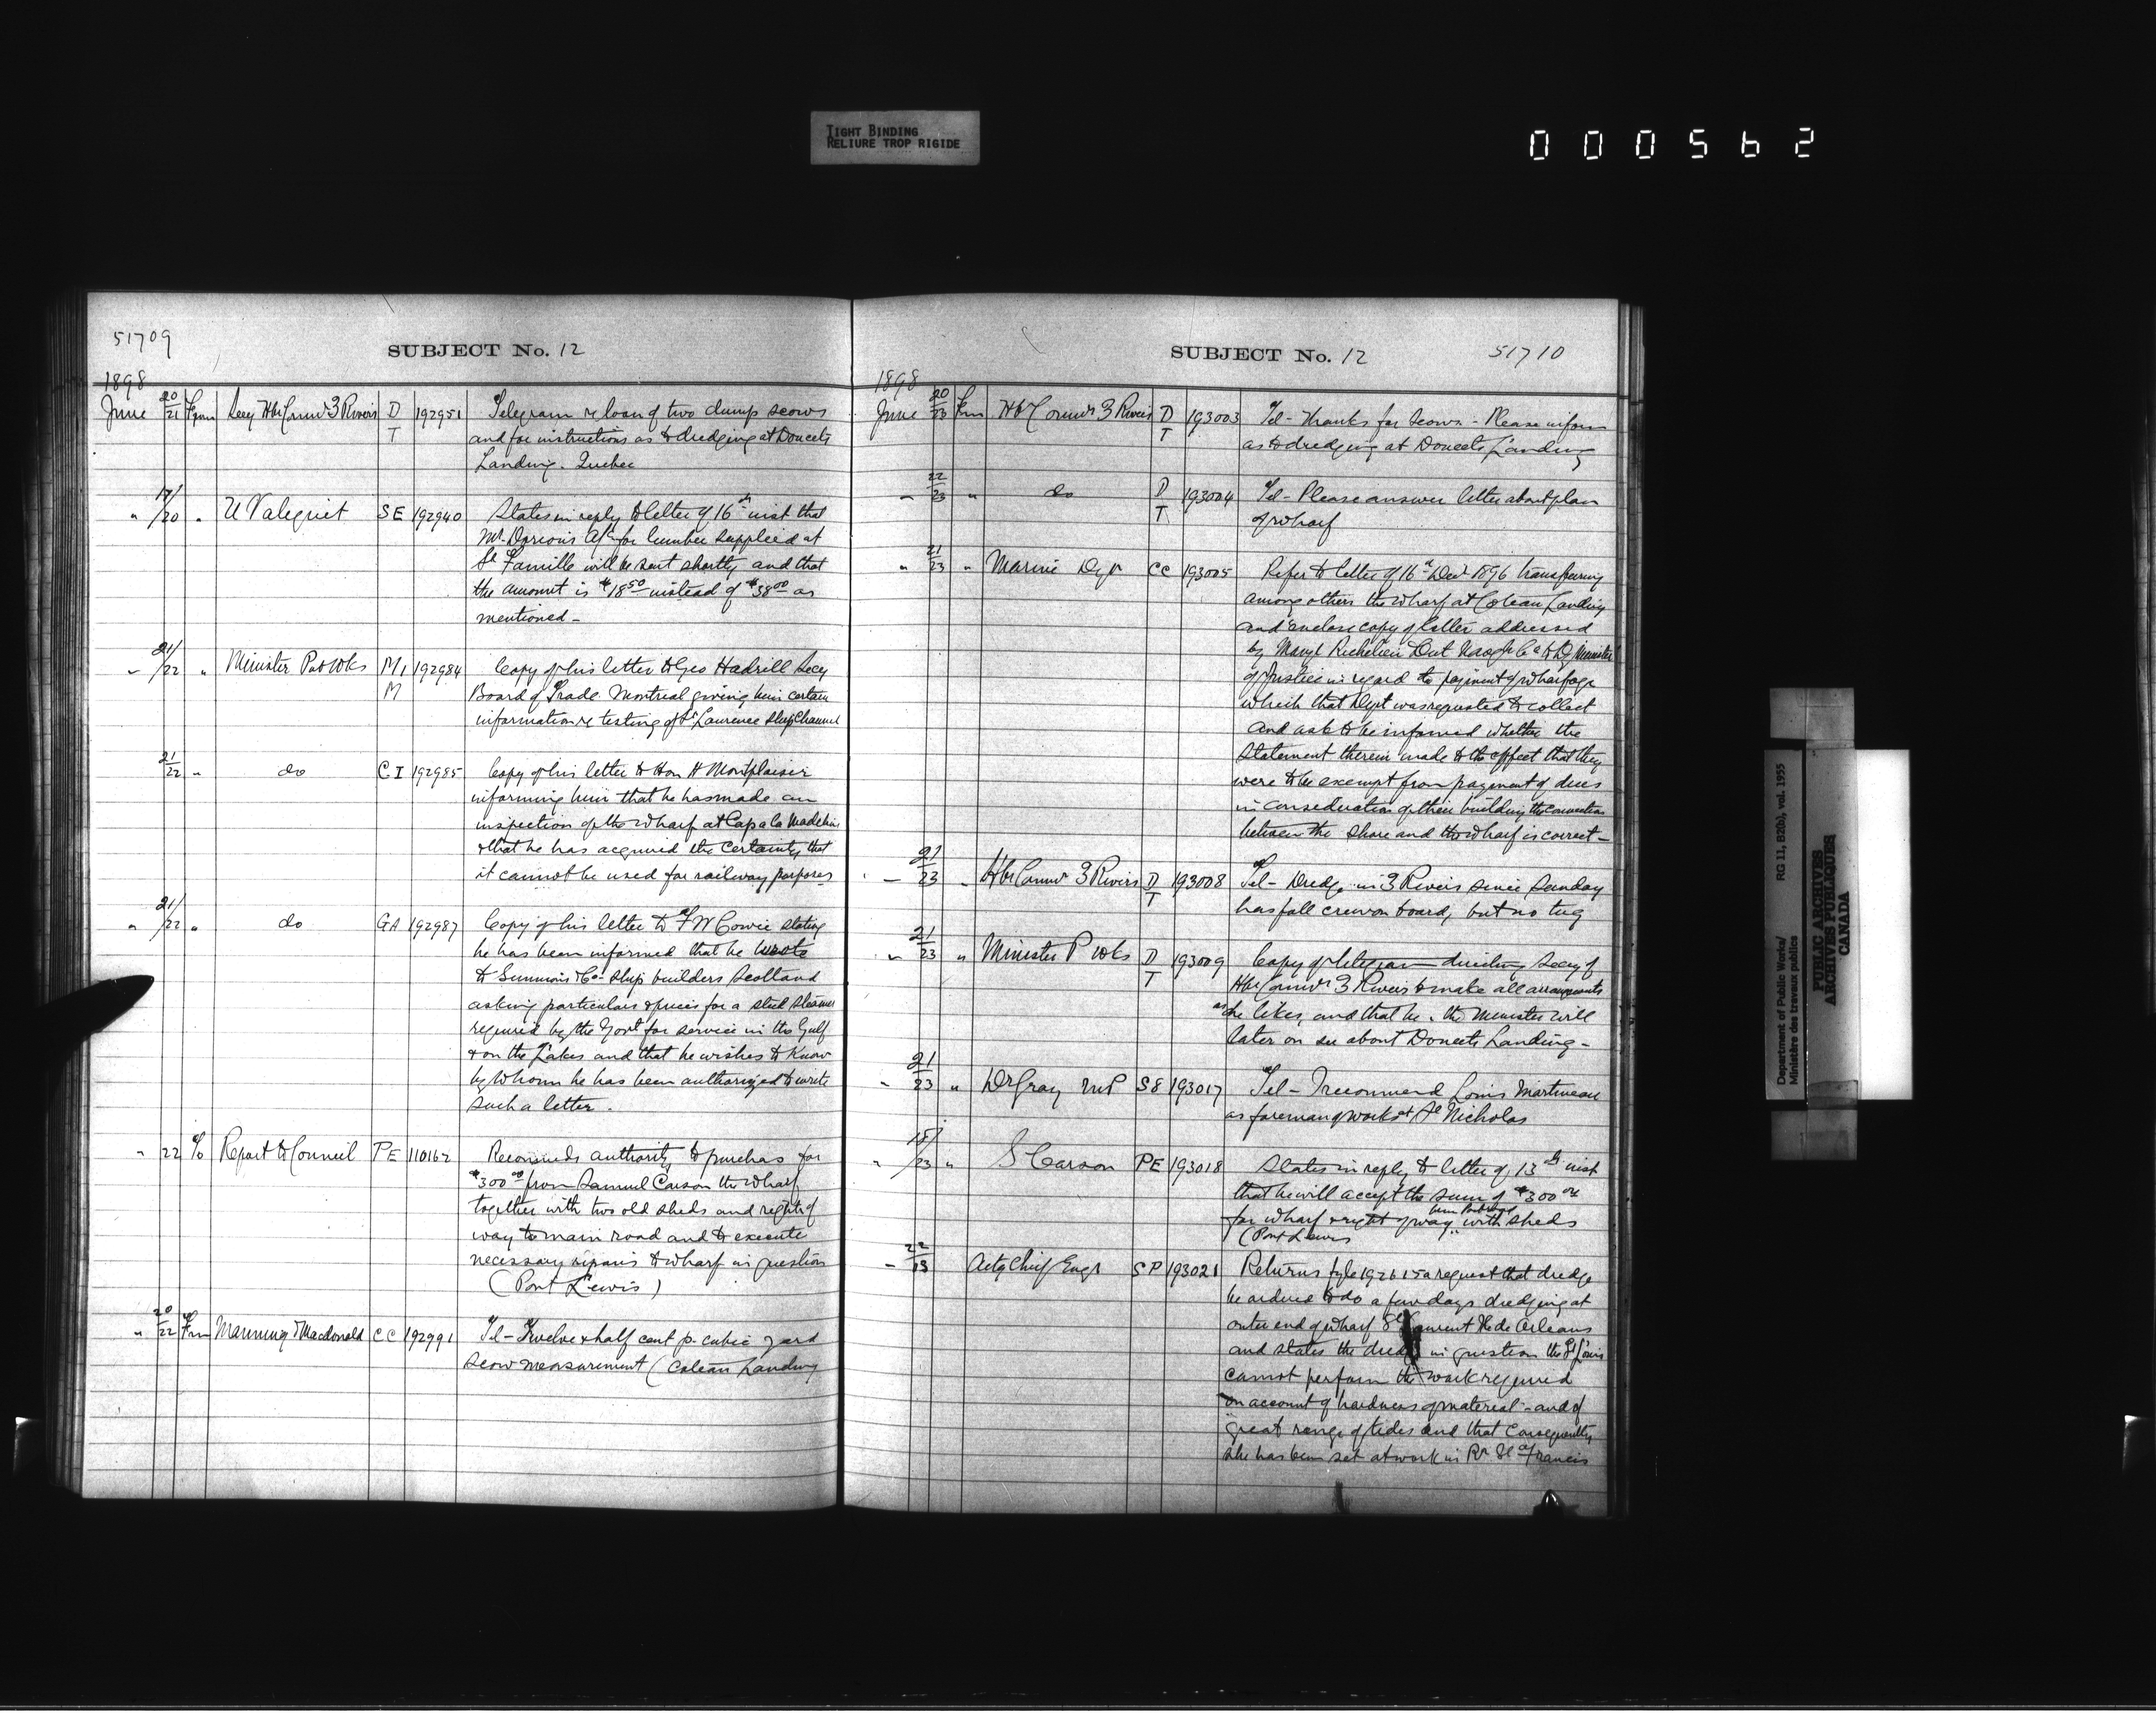 TIGHT BINDING
RELIURE TROP RIGIDE
000562
51709
SUBJECT No. 12
1898
June 20/21 From Secy Hbr Commrs 3 Rivers D T 192951 Telegram re loan of two dump scows
and for instructions as to dredging at Doucets
Landing. Quebec
" 17/20 " U Valiquet SE 192940 States in reply to letter of 16th inst that
Mr. Dorions a/c for lumber supplied at
St Famille will be sent shortly and that
the amount is $18.50 instead of $38.00 as
mentioned -
" 21/22 " Minister Pub Wks M1 M 192984 Copy of his letter to Geo Hadrill Secy
Board of Trade Montreal giving him certain
information re testing of St Laurence Ship Channel
21/22 " do CI 192985 Copy of his letter to Hon H Montplaisir
informing him that he has made an
inspection of the wharf at Cap de la Madeleine
& that he has acquired the certainty that
it cannot be used for railway purposes
" 21/22 " do GA 192987 Copy of his letter to F W Cowie stating
he has been informed that he wrote
to Simmons & Co. Ship builders Scotland
asking particulars & prices for a steel steamer
required by the Govt for service in the Gulf
& on the Lakes and that he wishes to know
by whom he has been authorized to write
such a letter.
" 22 To Report to Council PE 110162 Recommends authority to purchase for
$300.00 from Samuel Carson the wharf
together with two old sheds and right of
way to main road and to execute
necessary repairs to wharf in question
(Port Lewis)
" 20/22 From Manning & Macdonald CC 192991 Tel - Twelve & half cent p. cubic yard
scow measurement (Coteau Landing
SUBJECT No. 12
51710
1898
June 20/23 From Hbr Commrs 3 Rivers D T 193003 Tel - Thanks for scows - Please inform
as to dredging at Doucets Landing
" 22/23 " do D T 193004 Tel - Please answer letter about plan
of wharf
" 21/23 " Marine Dept CC 193005 Refer to letter of 16th Decr 1896 transferring
among others the wharf at Coteau Landing
and enclose copy of letter addressed
by Mangr Richelieu & Ont Navgn Co to Dy Minister
of Justice in regard to payment of wharfage
which that Dept was requested to collect
and ask to be informed whether the
statement therein made to the effect that they
were to be exempt from payment of dues
in consideration of their building the connection
between the shore and the wharf is correct -
" 21/23 " Hbr Commrs 3 Rivers D T 193008 Tel - Dredge in 3 Rivers since Sunday
has full crew on board, but no tug
" 21/23 " Minister P Wks D T 193009 Copy of telegram directing Secy of
Hbr Commrs 3 Rivers to make all arrangements
as he likes, and that he, the Minister will
later on see about Doucets Landing -
" 21/23 " Dr Gray MP S8 193017 Tel - I recommend Louis Martineau
as foreman of works at St Nicholas
" 15/23 " S Carson PE 193018 States in reply to letter of 13th inst
that he will accept the sum of $300.00
for wharf & right of way with sheds
(Port Lewis
" 22/23 Actg Chief Engr SP 193021 Returns fyle 192615 a request that dredge
be ordered to do a few days dredging at
outer end of wharf St Laurent Ile de Orleans
and states the dredge in question the St Louis
cannot perform the work required
on account of hardness of material - and of
great range of tides and that consequently
she has been set at work in Rr St Francis
Department of Public Works/ RG 11, B2(b), vol. 1955
Ministère des travaux publics
PUBLIC ARCHIVES
ARCHIVES PUBLIQUES
CANADA